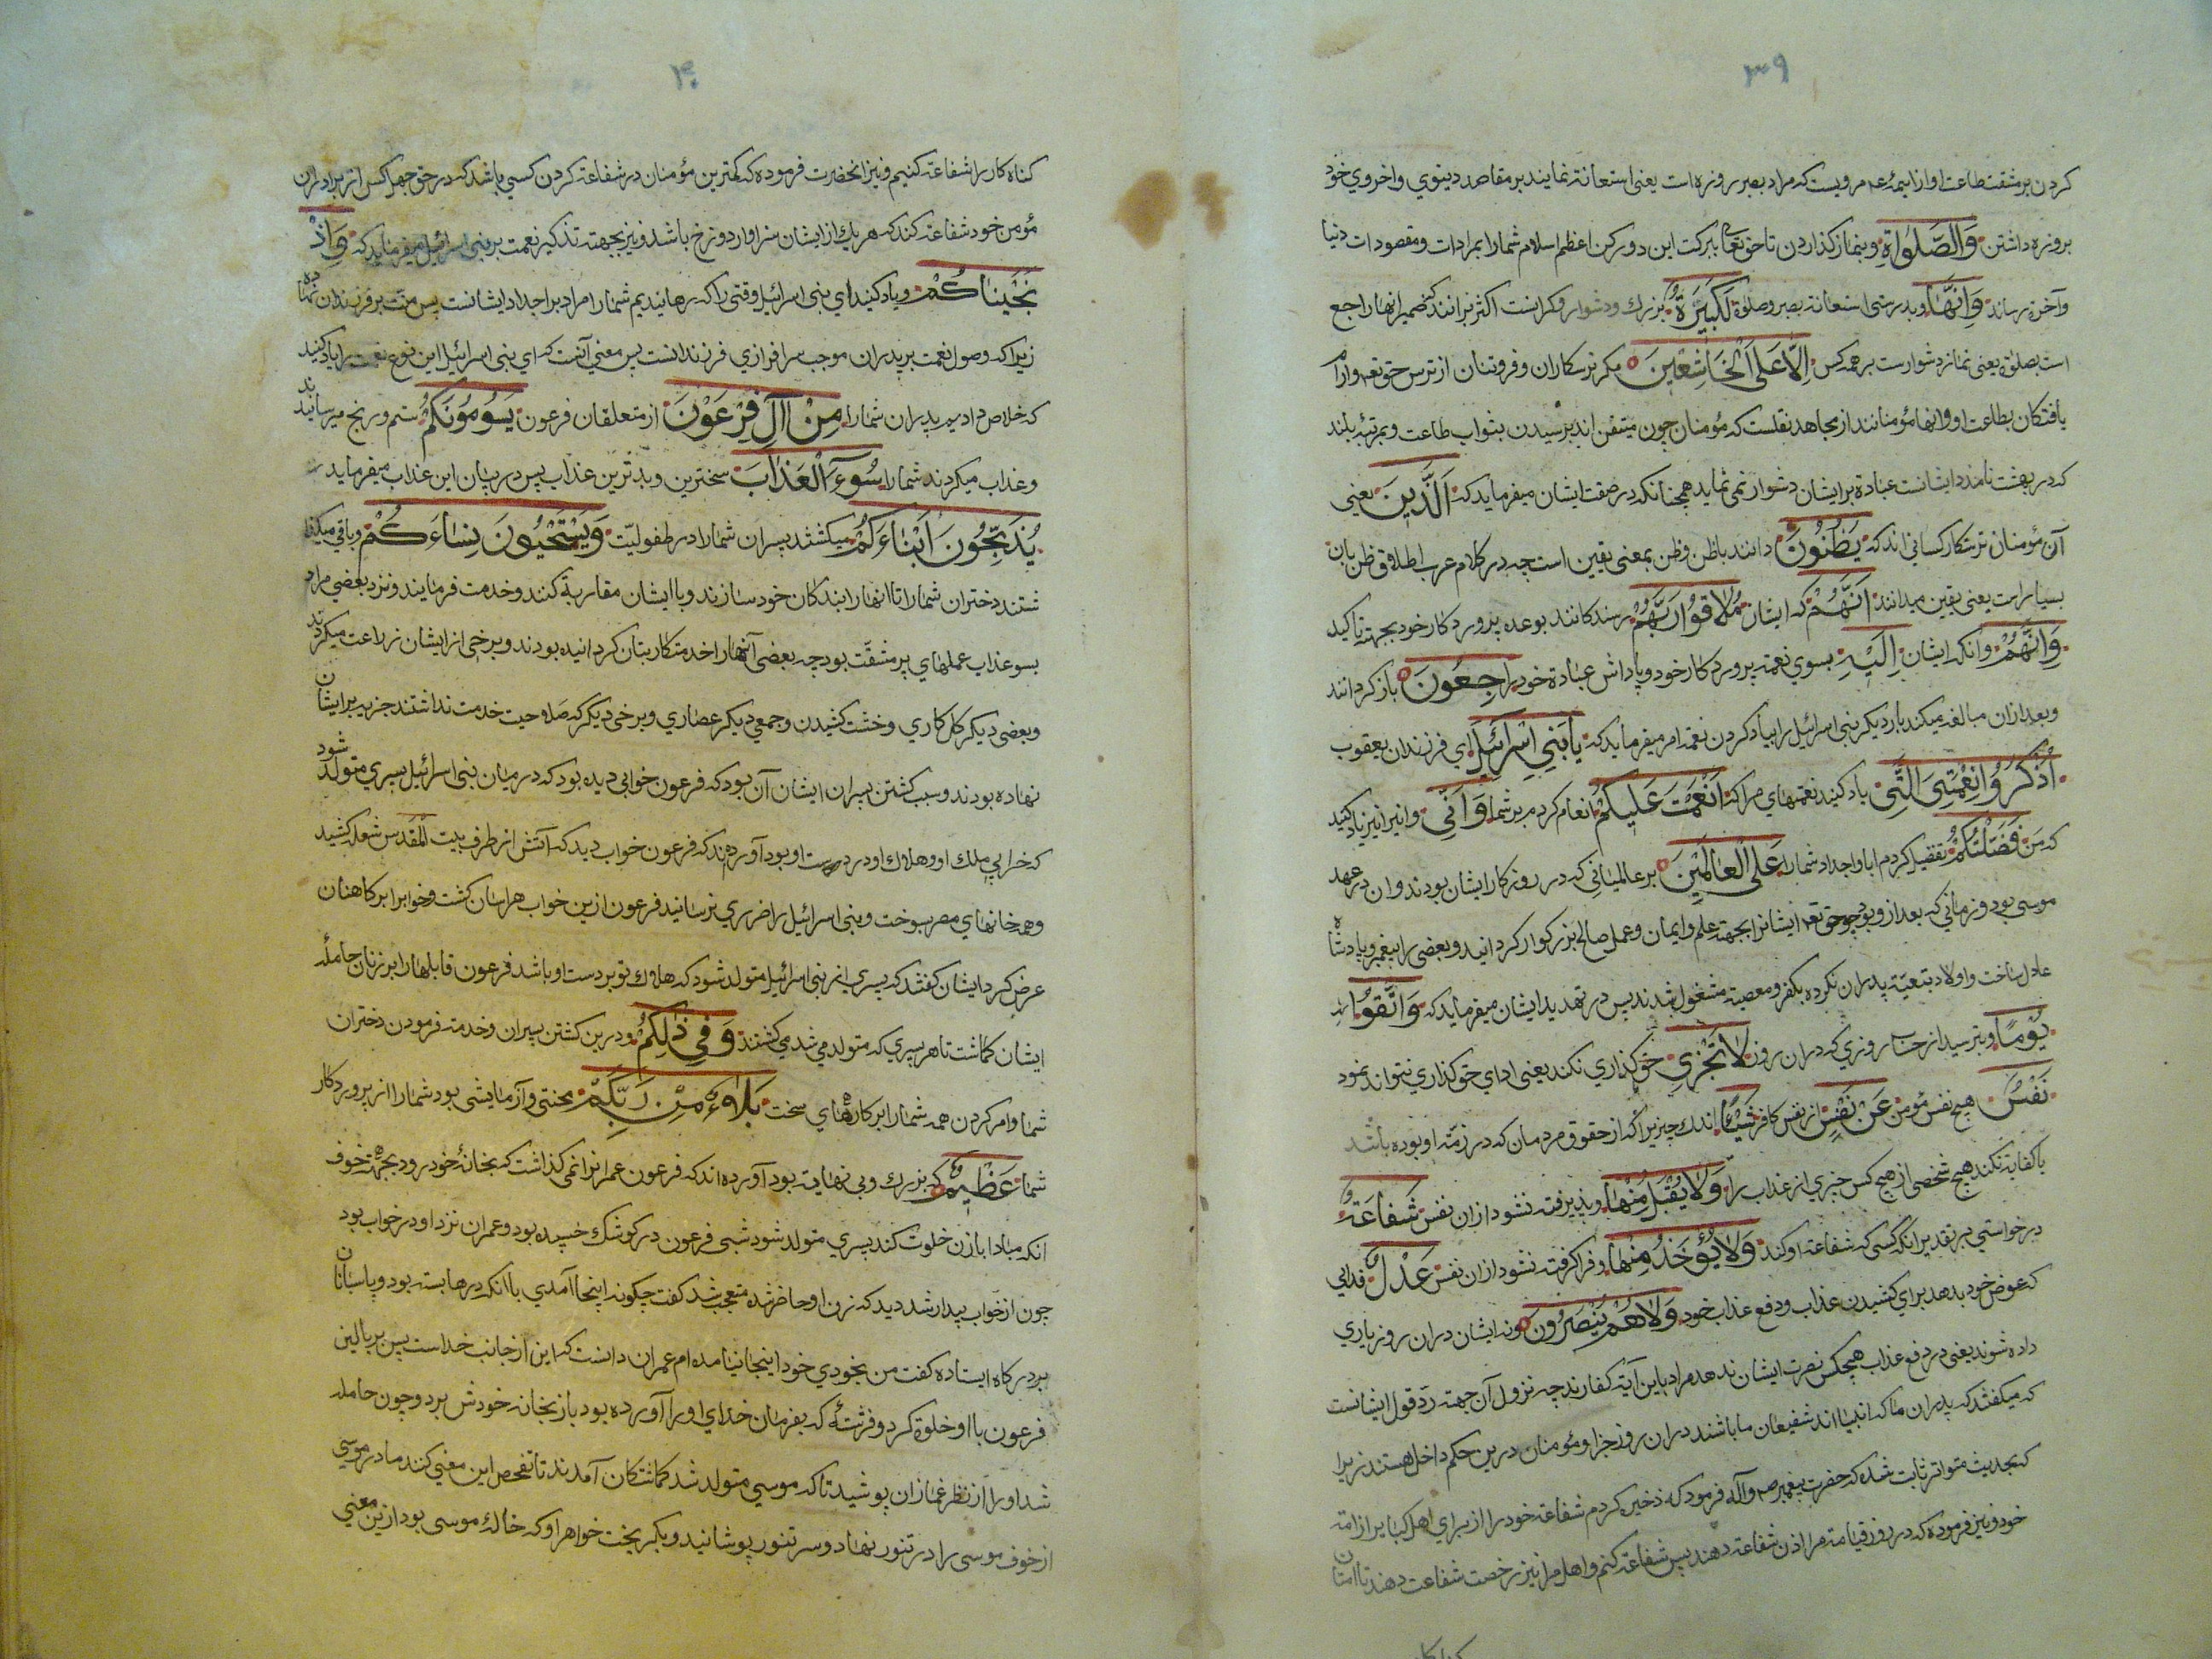 ۳۹
کردن بر مشقت طاعت او و از ائمه مرویست که مراد بصبر روزه است یعنی استعانة نمایند بر مقاصد دنیوی و اخروی خود
بروزه داشتن وَالصَّلوٰاةِ و بنماز گذاردن تا حق تعا ببرکت این دو رکن اعظم اسلام شما را بمرادات و مقصودات دنیا
و آخرة رساند وَاِنَّهٰا و بدرستی استعانة بصبر و صلوة لَكَبِیَرةٌ بزرك و دشوار و کرانست اکثر برانند که ضمیر انها راجع
است بصلوة یعنی نماز دشوارست بر همه کس اِلّٰا عَلَی الْخٰاشِعٖینَ مکر ترسکاران و فروتنان از ترس حق تعه و ارام
یافتکان بطاعت او و انها مؤمنانند از مجاهد نقلست که مؤمنان چون متیقن اند برسیدن بثواب طاعت و بمرتبۀ بلند
که در بهشت نامزد ایشانست عبادة بر ایشان دشوار نمی نماید همچنانکه در صفت ایشان میفرماید که اَلَّذٖینَ یعنی
آن مؤمنان ترسکار کسانی اند که یَظُنّونَ دانند باظن و ظن بمعنی یقین است چه در کلام عرب اطلاق ظن بان
بسیارست یعنی یقین میدانند اَنَّهُمْ که ایشان مُلٰاقُوا رَبَّهُمْ رسند کانند بوعده پروردکار خود بجهت تاکید
وَاَنَّهُمْ و انکه ایشان اِلَیْهِ بسوی نعمة پروردکار خود و پاداش عبادة خود رٰاجِعُونَ باز کردانند
و بعد ازان مبالغه میکند بار دیکر بنی اسرائیل را بیاد کردن نعمة امر میفرماید که یٰابَنیٖ اِسْرٰائٖیلَ ای فرزندان یعقوب
اُذْكُرُوا نِعْمَتِیَ الَّتیٖ یاد کنید نعمتهای مرا که اَنْعَمْتُ عَلَیْكُمْ انعام کردم بر شما وَاَنّیٖ و انیز یاد کنید
که من فَضَّلْتُكُمْ تفضیل کردم ابا و اجداد شما را عَلَی الْعٰالَمٖینَ بر عالمیانی که در روزکار ایشان بودند و ان در عهد
موسی بود و زمانی که بعد از و بود چو حق تعه ایشانرا بجهة علم و ایمان و عمل صالح بزرکوار کردانید و بعضی را پیغمبر و پادشاه
عادل ساخت و اولاد بتبعیّة پدران نکرده بکفر و معصیة مشغول شدند پس در تهدید ایشان میفرماید که وَاتَّقُوا
یَوْمًا و بترسید از حساب روزی که دران روز لٰا تَجْزیٖ حق کذاری نکند یعنی ادای حق کذاری نتواند نمود
نَفْسٌ هیچ نفس مؤمن عَنْ نَفْسٍ از نفس کافر شَیْئًا اندك چیزیرا که از حقوق مردمان که در ذمّۀ او بوده باشد
یا کفایة نکند هیچ شخصی از هیچ کس چیزی از عذاب را وَلٰا یُقْبَلُ مِنْهٰا و پذیرفته نشود ازان نفس شَفٰاعَةٌ
درخواستی بر تقدیر انکه کسی که شفاعة او کند وَلٰا یُؤْخَذُ مِنْهٰا و فرا کرفته نشود ازان نفس عَدْلٌ فدایی
که عوض خود بدهد برای کشیدن عذاب و دفع عذاب خود وَلٰا هُمْ یُنْصَرُونَ و نه ایشان دران روز یاری
داده شوند یعنی در دفع عذاب هیچکس نصرت ایشان ندهد مراد باین آیة کفارند چه نزول آن جهة ردّ قول ایشانست
که میکفتند که پدران ما که انبیا اند شفیعان ما باشند دران روز جزا و مؤمنان درین حکم داخل هستند زیرا
که بحدیث متواتر ثابت شده که حضرت پیغمبر صه و آله فرمود که ذخیره کردم شفاعة خود را از برای اهل کبایر از امة
خود و نیز فرموده که در روز قیامة مرا اذن شفاعة دهند پس شفاعة کنم و اهل مرا نیز رخصت شفاعت دهند تا امتان
کناه کار
۴۰
کناه کار را شفاعة کنیم و نیز انحضرت فرموده که کمترین مؤمنان در شفاعة کردن کسی باشد که در حق چهل کس از برادران
مؤمن خود شفاعة کند که هر یك از ایشان سزاوار دوزخ باشد و نیز بجهة تذکیر نعمت بر بنی اسرائیل میفرماید که وَاِذْ
نَجَّیْنٰاكُمْ و یاد کنید ای بنی اسرائیل وقتی را که رهانیدیم شما را مراد بر اجداد ایشانست پس منّت بر فرزندان نهاده
زیرا که وصول نعمت بر پدران موجب سرافرازی فرزندانست پس معنی آنست که ای بنی اسرائیل این نوع نعمت را یاد کنید
که خلاص دادیم پدران شما را مِنْ اٰلِ فِرْعَوْنَ از متعلقان فرعون یَسُومُونَكُمْ ستم و رنج میرسانیدند
و عذاب میکردند شما را سُوٓءَ الْعَذٰابِ سخترین و بدترین عذاب پس در بیان این عذاب میفرماید
یُذَبِّحُونَ اَبْنٰاءَكُمْ میکشتند پسران شما را در طفولیّت وَیَسْتَحْیُونَ نِسٰاءَكُمْ و باقی میکذا
شتند دختران شما را تا انها را بندکان خود سازند و با ایشان مقاربة کنند و خدمت فرمایند و نزد بعضی مراد
بسو عذاب عملهای پر مشقّت بود چه بعضی آنها را خدمتکار بتان کردانیده بودند و برخی از ایشان زراعت میکردند
و بعضی دیکر کل کاری و خشت کشیدن و جمعی دیکر عصاری و برخی دیکر که صلاحیت خدمت نداشتند جزیه بر ایشان
نهاده بودند و سبب کشتن پسران ایشان آن بود که فرعون خوابی دیده بود که در میان بنی اسرائیل پسری متولد شود
که خرابی ملك او و هلاك او در دست او بود آورده‌اند که فرعون خواب دید که آتش از طرف بیت المقدس شعله کشید
و همه خانهای مصر بسوخت و بنی اسرائیل را ضرری نرسانید فرعون ازین خواب هراسان کشت و خوابرا بر کاهنان
عرض کرد ایشان کفتند که پسری از بنی اسرائیل متولد شود که هلاك تو بر دست او باشد فرعون قابلها را بر زنان حاملۀ
ایشان کماشت تا هر پسری که متولد می شد می کشتند وَفیٖ ذٰلِكُمْ و درین کشتن پسران و خدمة فرمودن دختران
شما و امر کردن همه شما را بر کارهای سخت بَلٰاءٌ مِنْ رَبِّكُمْ محنتی و آزمایشی بود شما را از پروردکار
شما عَظٖیمٌ که بزرك و بی نهایة بود آورده اند که فرعون عمرانرا نمی کذاشت که بخانۀ خود رود بجهة خوف
انکه مبادا با زن خلوت کند پسری متولد شود شبی فرعون در کوشك خسپیده بود و عمران نزد او در خواب بود
چون از خواب بیدار شد دید که زن او حاضر شده متعجب شد کفت چکونه اینجا آمدی با انکه درها بسته بود و پاسبانان
بر درکاه ایستاده کفت من بخودی خود اینجا نیامده ام عمران دانست که این از جانب خداست پس بر بالین
فرعون با او خلوة کرد و فرشتۀ که بفرمان خدای او را آورده بود باز بخانه خودش برد و چون حامله
شد او را از نظر غمازان پوشید تا که موسی متولد شد کماشتکان آمدند تا تفحص این معنی کنند مادر موسی
از خوف موسی را در تنور نهاد و سر تنور پوشانید و بکریخت خواهر او که خاله موسی بود ازین معنی